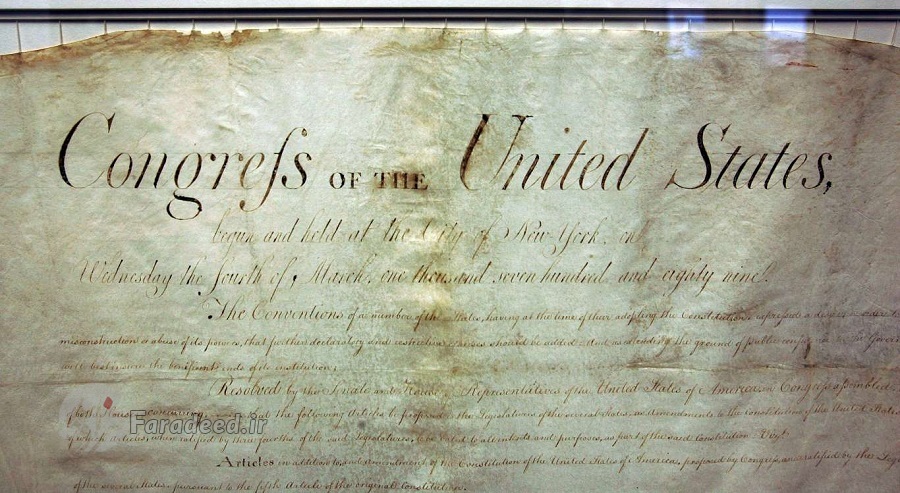 Congreſs OF THE United States,
begun and held at the City of New-York, on
Wednesday the fourth of March, one thousand seven hundred and eighty nine.
The Conventions of a number of the States, having at the time of their adopting the Constitution, expressed a desire
misconstruction or abuse of its powers, that further declaratory and restrictive clauses should be added: And as extending the ground of public confidence in the Govern
will best insure the beneficent ends of its institution;
Resolved by the Senate and House of Representatives of the United States of America, in Congress assembled
of both Houses concurring, that the following Articles be proposed to the Legislatures of the several States, as amendments to the Constitution of the United States
of which Articles, when ratified by three fourths of the said Legislatures, to be valid to all intents and purposes, as part of the said Constitution. Vizt.
Articles in addition to, and amendment of the Constitution of the United States of America, proposed by Congress, and ratified by the Leg
of the several States, pursuant to the fifth Article of the original Constitution.
Faradeed.ir